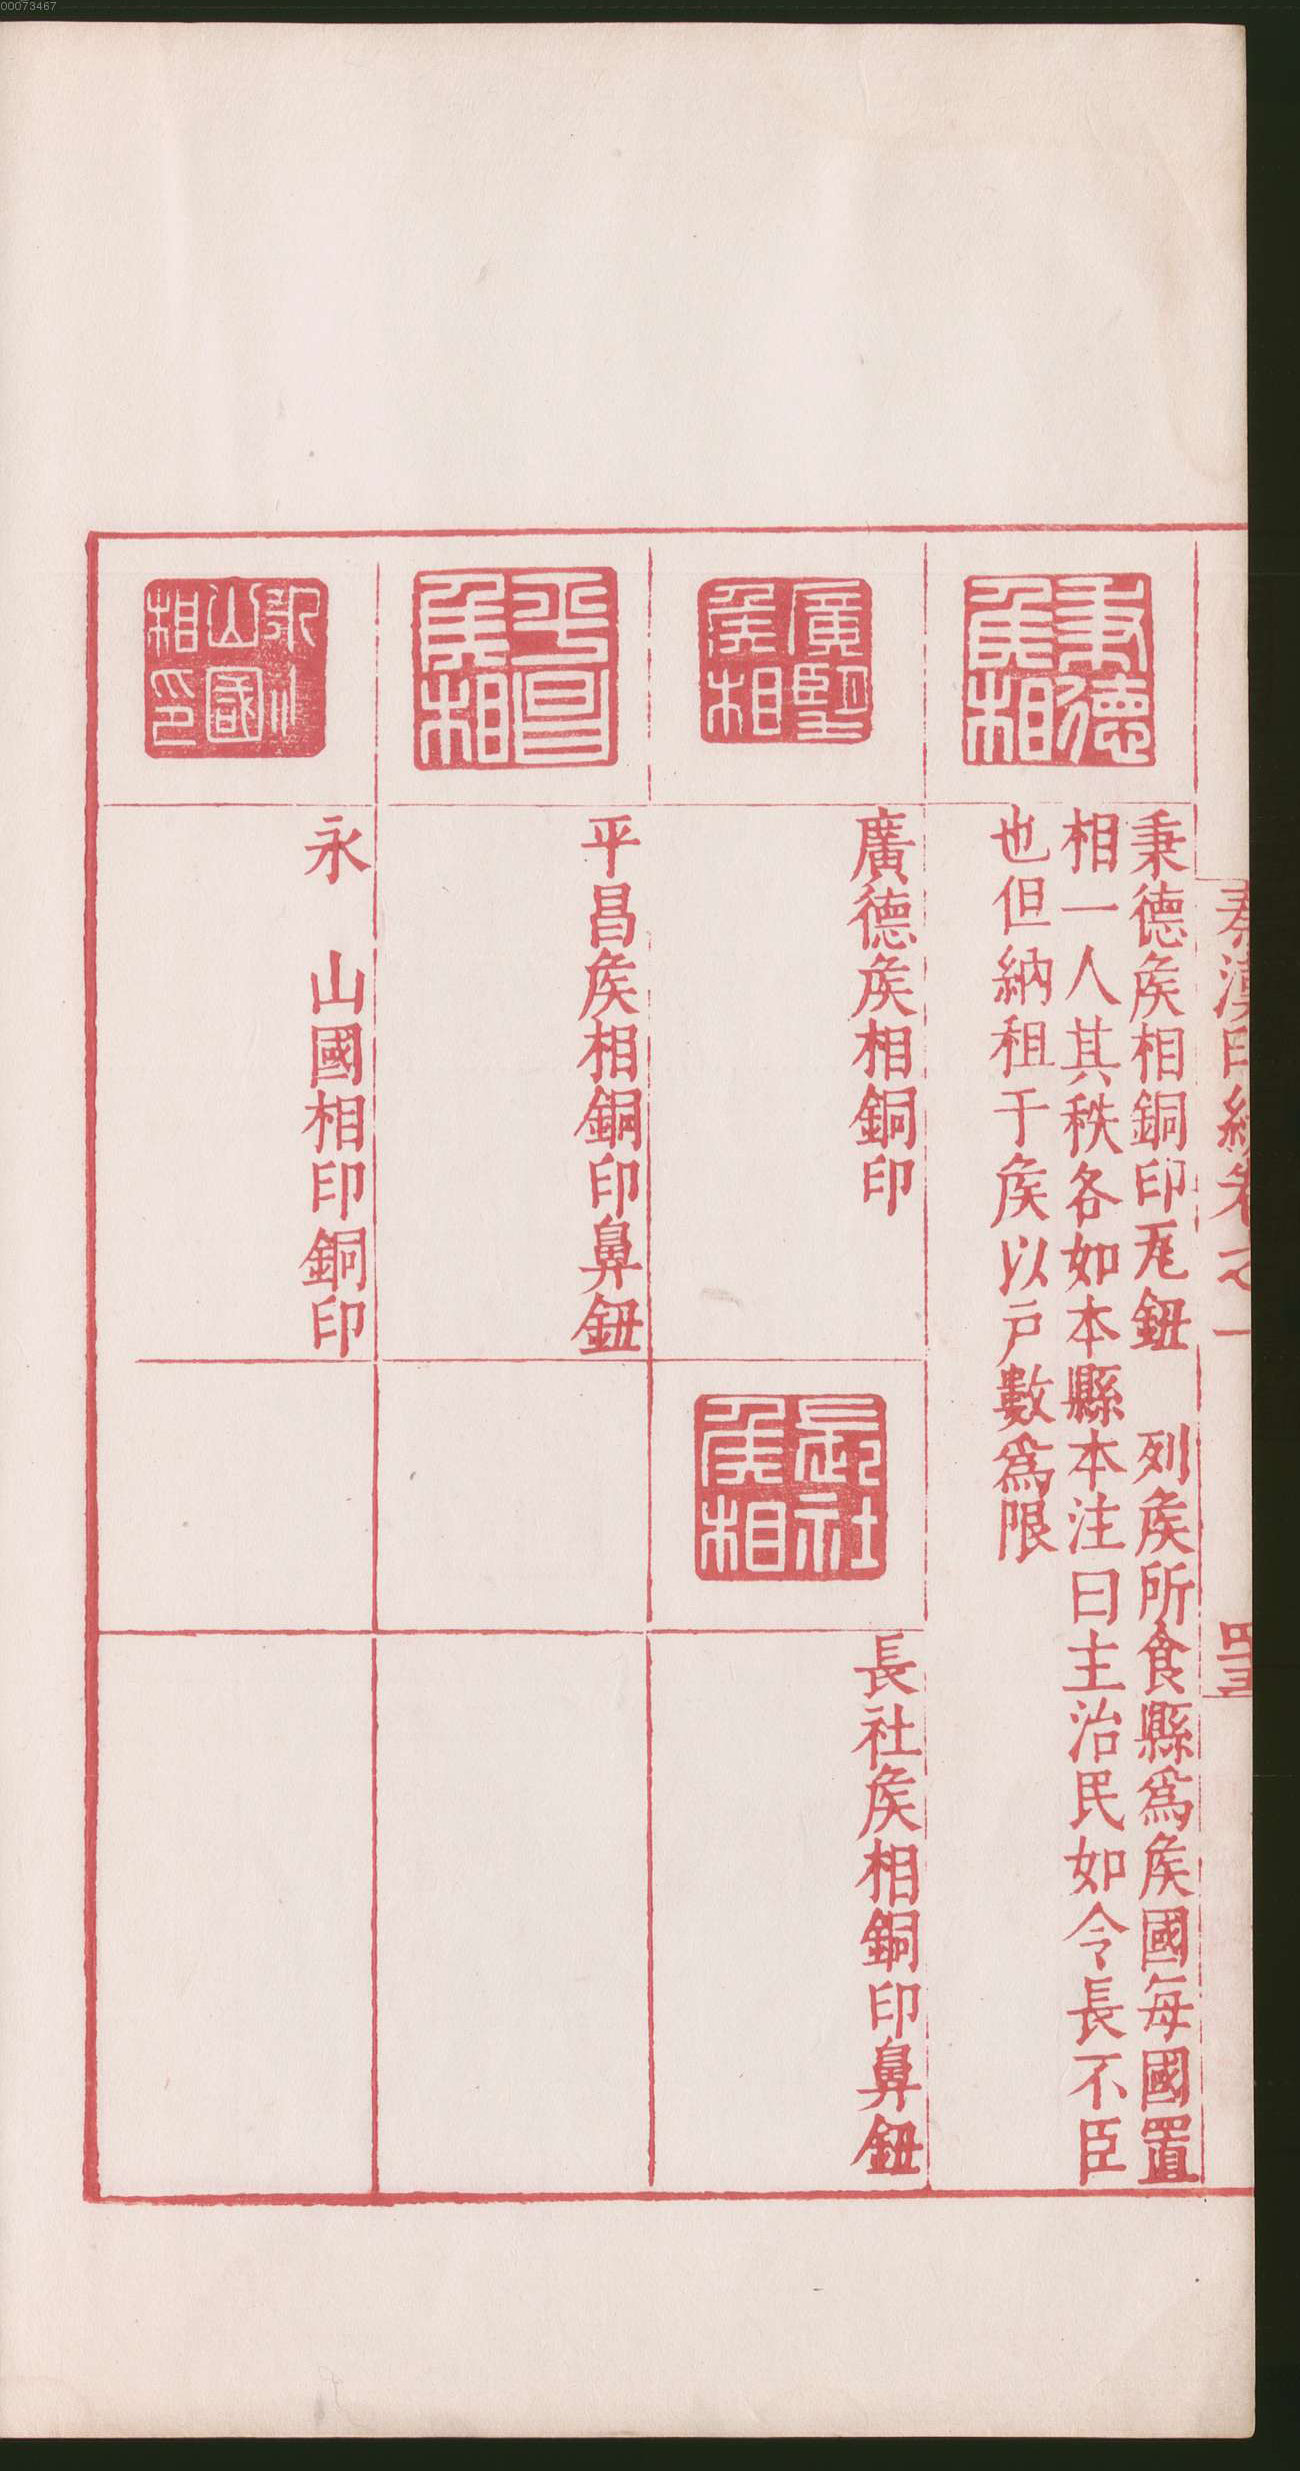 00073467
秦漢印統卷之一
秉德矦相
秉德矦相銅印瓦鈕 列矦所食縣爲矦國每國置
相一人其秩各如本縣本注曰主治民如令長不臣
也但納租于矦以户數爲限
矦相
廣德矦相銅印
長社矦相
長社矦相銅印鼻鈕
平昌矦相
平昌矦相銅印鼻鈕
山國相印
永 山國相印銅印